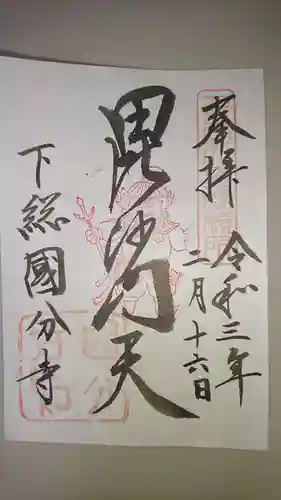 奉拝
令和三年
二月十六日
毘沙門天
下総國分寺